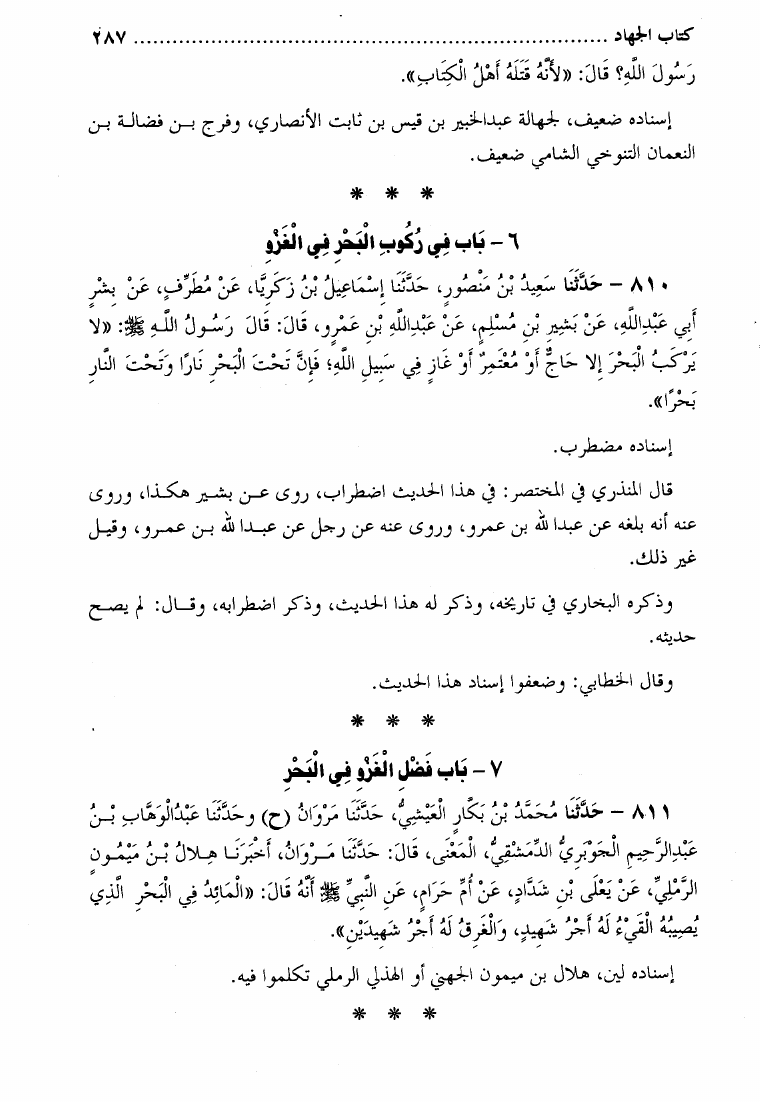 كتاب الجهاد ........................................................................... ٢٨٧
رَسُولَ اللَّهِ؟ قَالَ: «لأَنَّهُ قَتَلَهُ أَهْلُ الْكِتَابِ».
إسناده ضعيف، لجهالة عبدالخبير بن قيس بن ثابت الأنصاري، وفرج بـن فضالـة بـن
النعمان التنوخي الشامي ضعيف.
* * *
٦ - بَاب فِي رُكُوبِ الْبَحْرِ فِي الْغَزْوِ
٨١٠ - حَدَّثَنَا سَعِيدُ بْنُ مَنْصُورٍ، حَدَّثَنَا إِسْمَاعِيلُ بْنُ زَكَرِيَّا، عَنْ مُطَرِّفٍ، عَنْ بِشْرٍ
أَبِي عَبْدِاللَّهِ، عَنْ بَشِيرِ بْنِ مُسْلِمٍ، عَنْ عَبْدِاللَّهِ بْنِ عَمْرٍو، قَالَ: قَالَ رَسُولُ اللَّـهِ ﷺ: «لا
يَرْكَبُ الْبَحْرَ إِلا حَاجٌّ أَوْ مُعْتَمِرٌ أَوْ غَازٍ فِي سَبِيلِ اللَّهِ؛ فَإِنَّ تَحْتَ الْبَحْرِ نَارًا وَتَحْتَ النَّارِ
بَحْرًا».
إسناده مضطرب.
قال المنذري في المختصر: في هذا الحديث اضطراب، روى عـن بشـير هكـذا، وروى
عنه أنه بلغه عن عبدا لله بن عمرو، وروى عنه عن رجل عن عبـدا لله بـن عمـرو، وقيـل
غير ذلك.
وذكره البخاري في تاريخه، وذكر له هذا الحديث، وذكر اضطرابه، وقـال: لم يصـح
حديثه.
وقال الخطابي: وضعفوا إسناد هذا الحديث.
* * *
٧ - بَاب فَضْلِ الْغَزْوِ فِي الْبَحْرِ
٨١١ - حَدَّثَنَا مُحَمَّدُ بْنُ بَكَّارٍ الْعَيْشِيُّ، حَدَّثَنَا مَرْوَانُ (ح) وحَدَّثَنَا عَبْدُالْوَهَّابِ بْـنُ
عَبْدِالرَّحِيمِ الْجَوْبَرِيُّ الدِّمَشْقِيُّ، الْمَعْنَى، قَالَ: حَدَّثَنَا مَـرْوَانُ، أَخْبَرَنَـا هِـلالُ بْـنُ مَيْمُـونٍ
الرَّمْلِيُّ، عَنْ يَعْلَى بْنِ شَدَّادٍ، عَنْ أُمِّ حَرَامٍ، عَنِ النَّبِيِّ ﷺ أَنَّهُ قَالَ: «الْمَائِدُ فِي الْبَحْرِ الَّذِي
يُصِيبُهُ الْقَيْءُ لَهُ أَجْرُ شَهِيدٍ، وَالْغَرِقُ لَهُ أَجْرُ شَهِيدَيْنِ».
إسناده لين، هلال بن ميمون الجهني أو الهذلي الرملي تكلموا فيه.
* * *